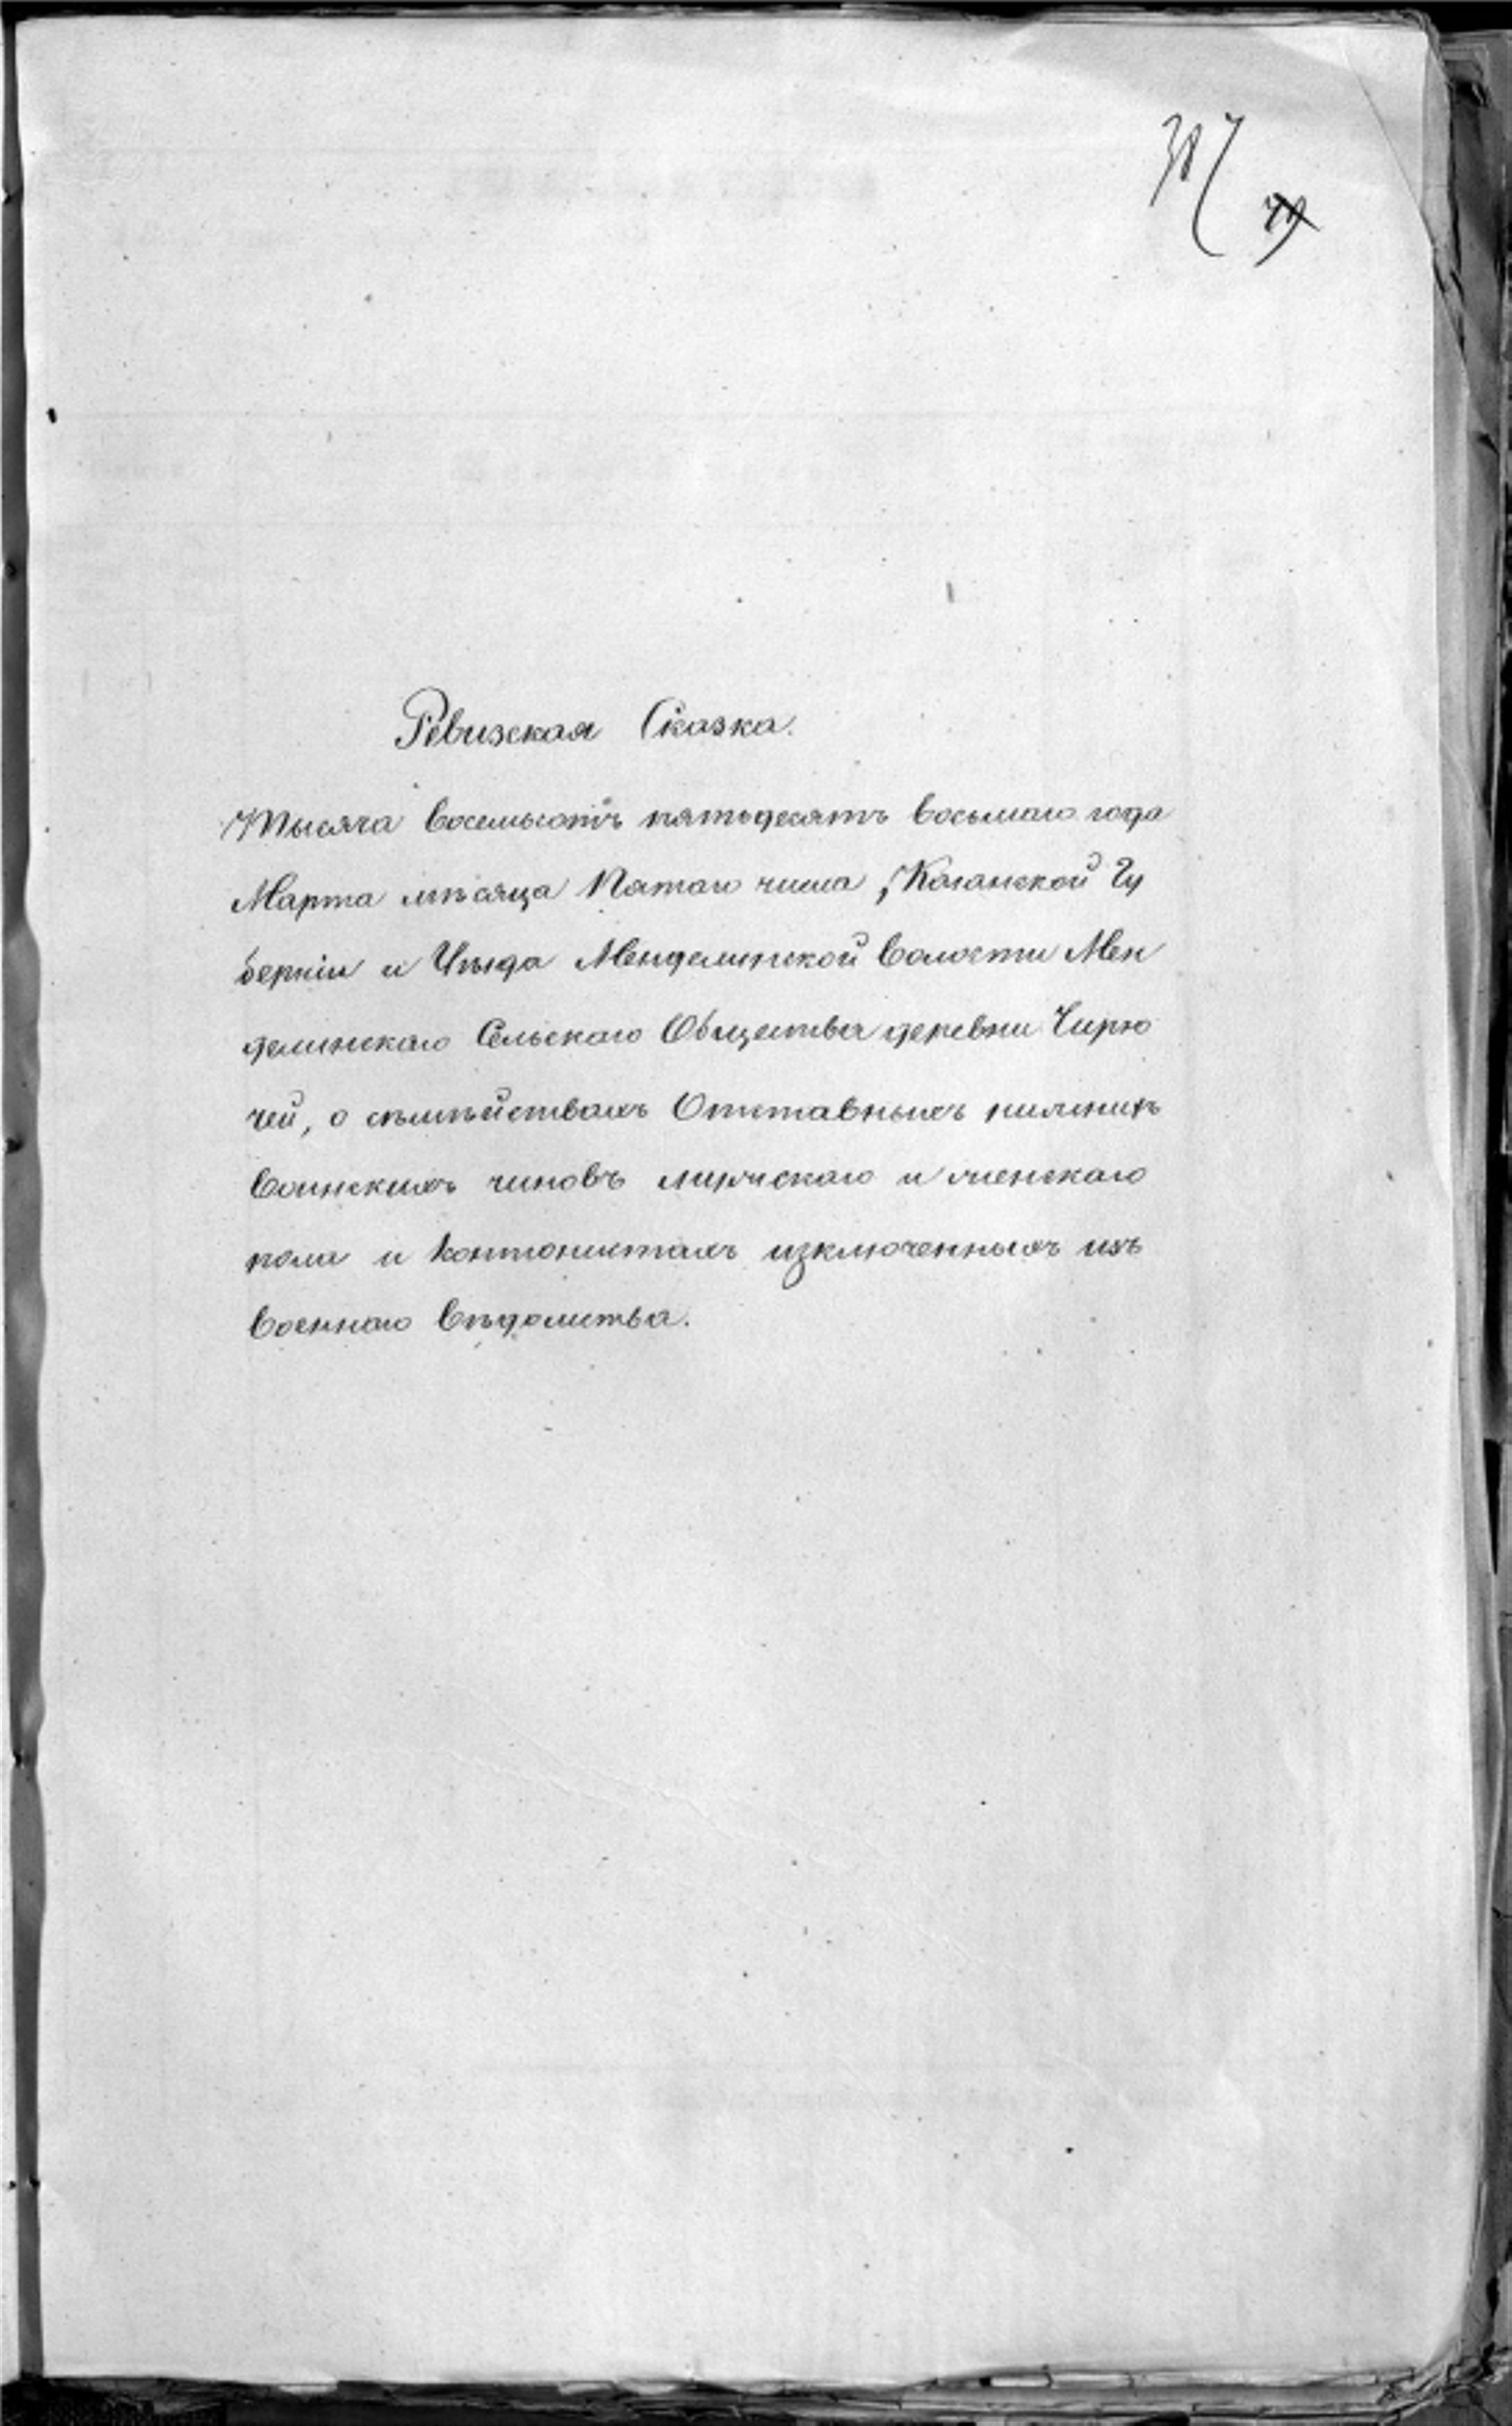 Ревизская Сказка.
Тысяча восемьсотъ пятьдесятъ восьмаго года
Марта мѣсяца Пятаго числа, Казанской Гу
берніи и Уѣзда Менделинской Волости Мен
делинскаго Сельскаго Общества деревни Чирю
чей, о сѣмѣйствахъ Отставныхъ нижнихъ
Воинскихъ чиновъ мужскаго и женскаго
пола и Кантонистахъ изключенныхъ изъ
Военнаго Вѣдомства.